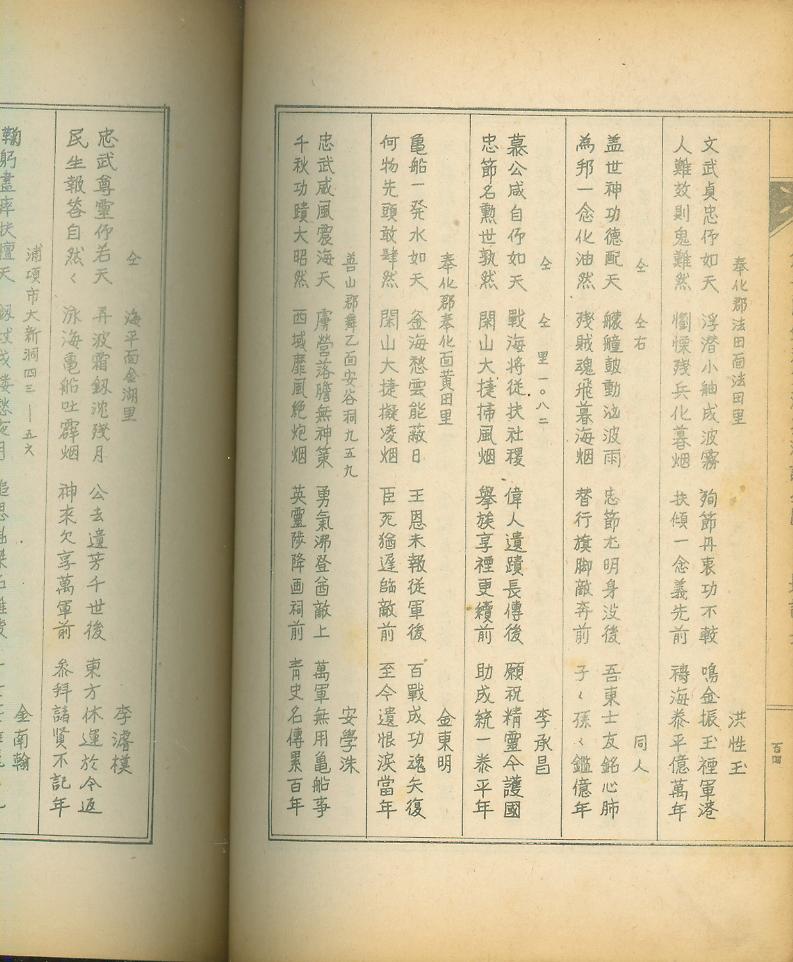 奉化郡法田面法田里 洪性玉
文武貞忠仰如天 浮潛小舳成波霧 殉節丹衷功不較 鳴金振玉裡軍港
人難效則鬼難然 慟慄殘兵化暮烟 扶傾一念義先前 禱海泰平億萬年
仝 仝右 同人
盖世神功德配天 艨艟鼓動汹波雨 忠節尤明身没後 吾東士友銘心肺
為邦一念化油然 殘賊魂飛暮海烟 替行旗脚敵奔前 子〻孫〻鑑億年
仝 仝 里一〇八二 李承昌
慕公咸自仰如天 戰海将從扶社稷 偉人遺蹟長傳後 願祝精靈今護國
忠節名勲世孰然 閑山大捷掃風烟 擧族享禋更續前 助成統一泰平年
奉化郡奉化面黄田里 金東明
亀船一発水如天 釜海愁雲能蔽日 王恩未報従軍後 百戰成功魂矢復
何物先頭敢肆然 閑山大捷擬凌烟 臣死猶遅臨敵前 至今遺恨淚當年
善山郡舞乙面安谷洞九五九 安學洙
忠武威風震海天 虜營落膽無神策 勇氣沸登酋敵上 萬軍無用亀船事
千秋功蹟大昭然 西域靡風絶炮烟 英靈陟降画祠前 青史名傳累百年
仝 海平面金湖里 李濬模
忠武尊靈仰若天 弄波霜釼沈殘月 公去遺芳千世後 東方休運於今返
民生報答自然〻 泳海亀船吐霹烟 神來欠享萬軍前 参拜諸賢不記年
浦項市大新洞四三ー五六 金南翰
鞠躬盡瘁扶檀天